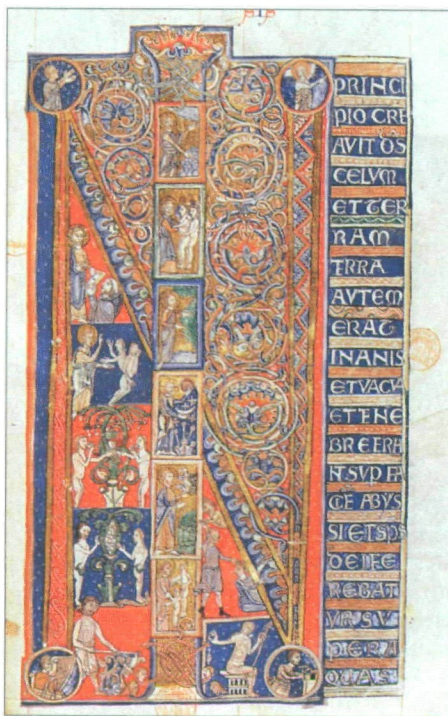 IN
PRINCI
PIO CRE
AVIT DS
CELVM
ET TER
RAM
TRRA
AVTEM
ERAT
INANIS
ET VACVA
ET TENE
BRE ERA
NT SVP FA
CIE ABYS
SI ET SPS
DEI FE
REBAT
VR SV
PER A
QUAS